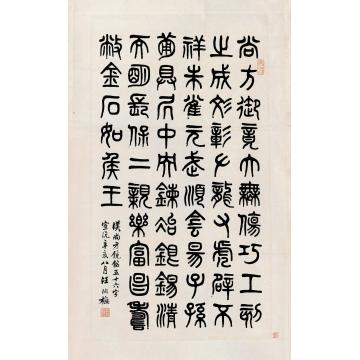 尚方御竟大無傷巧工刻
之成彣彰左龍右虎辟不
祥朱雀元武順陰陽子孫
備具居中央鍊冶銀錫清
而明長保二親樂富昌壽
敝金石如侯王
漢尚方鏡銘五十六字
宣統辛亥八月汪洵橅